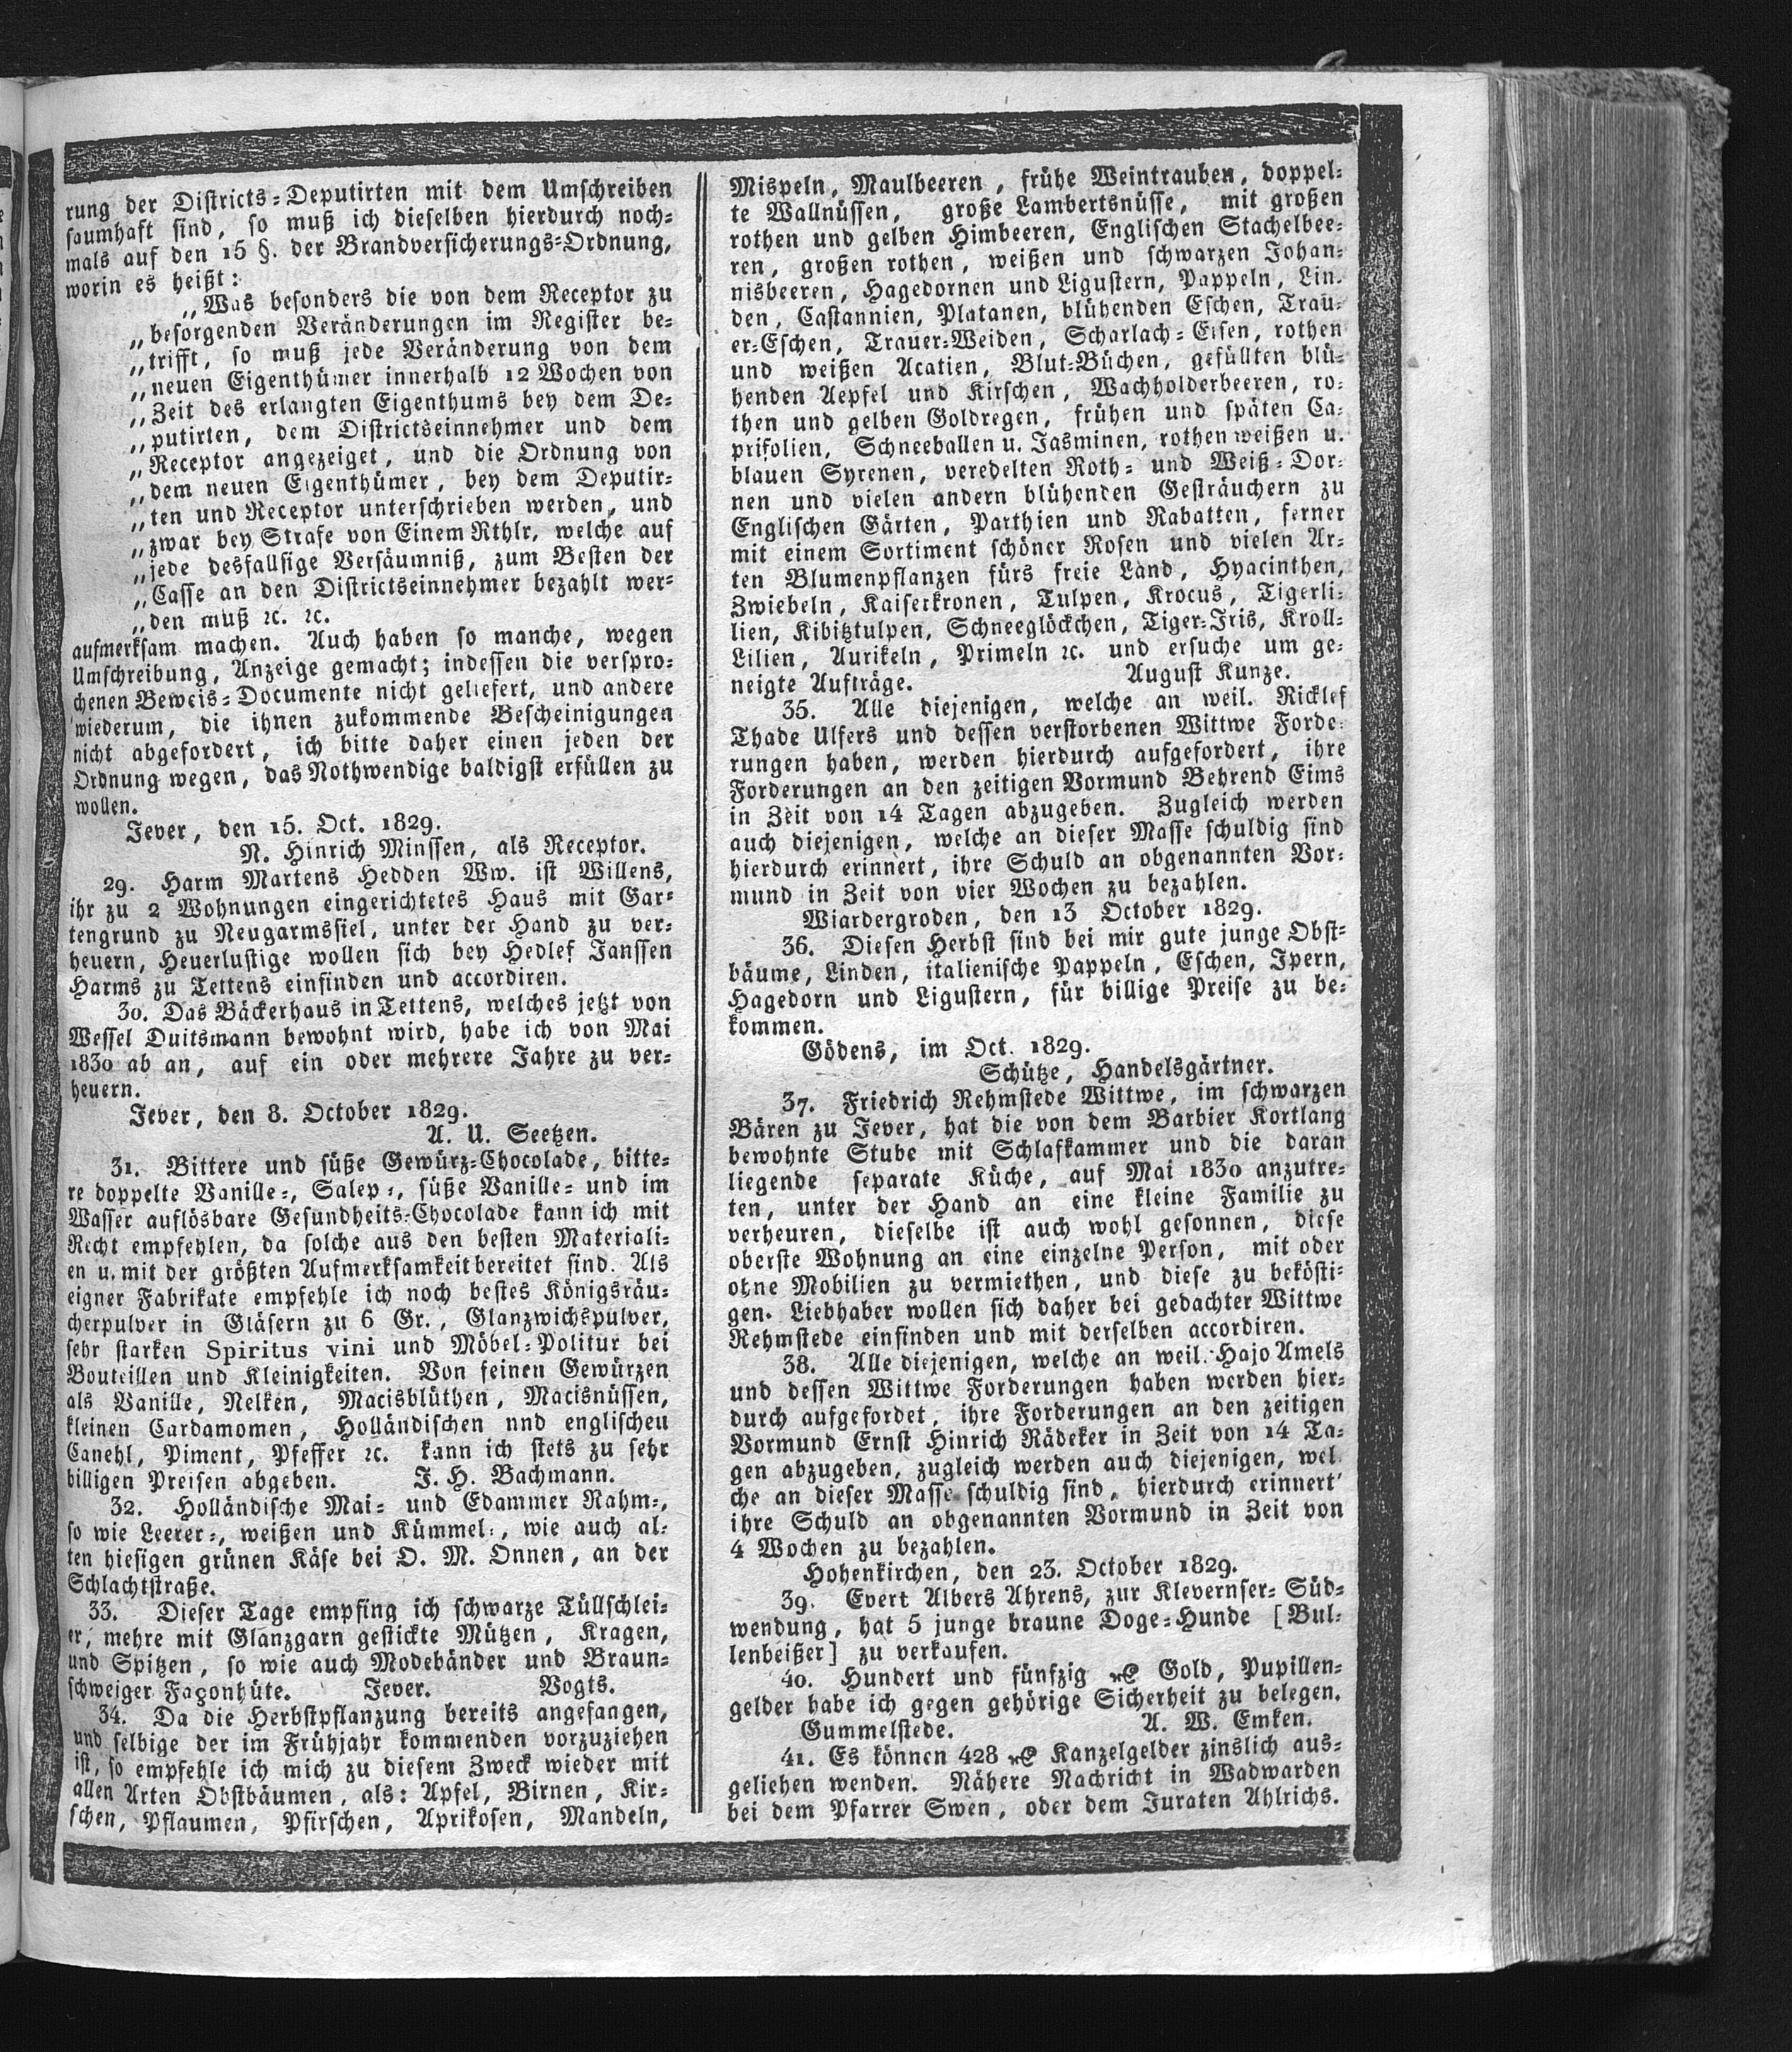 rung der Districts-Deputirten mit dem Umschreiben
saumhaft sind, so muß ich dieselben hierdurch noch-
mals auf den 15 §. der Brandversicherungs-Ordnung,
worin es heißt:
„Was besonders die von dem Receptor zu
„besorgenden Veränderungen im Register be-
„trifft, so muß jede Veränderung von dem
„neuen Eigenthümer innerhalb 12 Wochen von
„Zeit des erlangten Eigenthums bey dem De-
„putirten, dem Districtseinnehmer und dem
„Receptor angezeiget, und die Ordnung von
„dem neuen Eigenthümer, bey dem Deputir-
„ten und Receptor unterschrieben werden, und
„zwar bey Strafe von Einem Rthlr. welche auf
„jede desfallsige Versäumniß, zum Besten der
„Casse an den Districtseinnehmer bezahlt wer-
„den muß ꝛc. ꝛc.
aufmerksam machen. Auch haben so manche, wegen
Umschreibung, Anzeige gemacht; indessen die verspro-
chenen Beweis-Documente nicht geliefert, und andere
wiederum, die ihnen zukommende Bescheinigungen
nicht abgefordert, ich bitte daher einen jeden der
Ordnung wegen, das Nothwendige baldigst erfüllen zu
wollen.
Jever, den 15. Oct. 1829.
N. Hinrich Minssen, als Receptor.
29. Harm Martens Hedden Ww. ist Willens,
ihr zu 2 Wohnungen eingerichtetes Haus mit Gar-
tengrund zu Neugarmssiel, unter der Hand zu ver-
heuern, Heuerlustige wollen sich bey Hedlef Janssen
Harms zu Tettens einfinden und accordiren.
30. Das Bäckerhaus in Tettens, welches jetzt von
Wessel Duitsmann bewohnt wird, habe ich von Mai
1830 ab an, auf ein oder mehrere Jahre zu ver-
heuern.
Jever, den 8. October 1829.
A. U. Seetzen.
31. Bittere und süße Gewürz-Chocolade, bitte-
re doppelte Vanille-, Salep-, süße Vanille- und im
Wasser auflösbare Gesundheits-Chocolade kann ich mit
Recht empfehlen, da solche aus den besten Materiali-
en u. mit der größten Aufmerksamkeit bereitet sind. Als
eigner Fabrikate empfehle ich noch bestes Königsräu-
cherpulver in Gläsern zu 6 Gr., Glanzwichspulver,
sehr starken Spiritus vini und Möbel-Politur bei
Bouteillen und Kleinigkeiten. Von feinen Gewürzen
als Vanille, Nelken, Macisblüthen, Macisnüssen,
kleinen Cardamomen, Holländischen nnd englischen
Canehl, Piment, Pfeffer ꝛc. kann ich stets zu sehr
billigen Preisen abgeben. J. H. Bachmann.
32. Holländische Mai- und Edammer Rahm-,
so wie Leerer-, weißen und Kümmel-, wie auch al-
ten hiesigen grünen Käse bei O. M. Onnen, an der
Schlachtstraße.
33. Dieser Tage empfing ich schwarze Tüllschlei-
er, mehre mit Glanzgarn gestickte Mützen, Kragen,
und Spitzen, so wie auch Modebänder und Braun-
schweiger Façonhüte. Jever. Vogts.
34. Da die Herbstpflanzung bereits angefangen,
und selbige der im Frühjahr kommenden vorzuziehen
ist, so empfehle ich mich zu diesem Zweck wieder mit
allen Arten Obstbäumen, als: Apfel, Birnen, Kir-
schen, Pflaumen, Pfirschen, Aprikosen, Mandeln,
Mispeln, Maulbeeren, frühe Weintrauben, doppel-
te Wallnüssen, große Lambertsnüsse, mit großen
rothen und gelben Himbeeren, Englischen Stachelbee-
ren, großen rothen, weißen und schwarzen Johan-
nisbeeren, Hagedornen und Ligustern, Pappeln, Lin-
den, Castannien, Platanen, blühenden Eschen, Trau-
er-Eschen, Trauer-Weiden, Scharlach-Eisen, rothen
und weißen Acatien, Blut-Büchen, gefüllten blü-
henden Aepfel und Kirschen, Wachholderbeeren, ro-
then und gelben Goldregen, frühen und späten Ca-
prifolien, Schneeballen u. Jasminen, rothen weißen u.
blauen Syrenen, veredelten Roth- und Weiß-Dor-
nen und vielen andern blühenden Gesträuchern zu
Englischen Gärten, Parthien und Rabatten, ferner
mit einem Sortiment schöner Rosen und vielen Ar-
ten Blumenpflanzen fürs freie Land, Hyacinthen,
Zwiebeln, Kaiserkronen, Tulpen, Krocus, Tigerli-
lien, Kibitztulpen, Schneeglöckchen, Tiger-Iris, Kroll-
Lilien, Aurikeln, Primeln ꝛc. und ersuche um ge-
neigte Aufträge. August Kunze.
35. Alle diejenigen, welche an weil. Ricklef
Thade Ulfers und dessen verstorbenen Wittwe Forde-
rungen haben, werden hierdurch aufgefordert, ihre
Forderungen an den zeitigen Vormund Behrend Eims
in Zeit von 14 Tagen abzugeben. Zugleich werden
auch diejenigen, welche an dieser Masse schuldig sind
hierdurch erinnert, ihre Schuld an obgenannten Vor-
mund in Zeit von vier Wochen zu bezahlen.
Wiardergroden, den 13 October 1829.
36. Diesen Herbst sind bei mir gute junge Obst-
bäume, Linden, italienische Pappeln, Eschen, Ipern,
Hagedorn und Ligustern, für billige Preise zu be-
kommen.
Gödens, im Oct. 1829.
Schütze, Handelsgärtner.
37. Friedrich Rehmstede Wittwe, im schwarzen
Bären zu Jever, hat die von dem Barbier Kortlang
bewohnte Stube mit Schlafkammer und die daran
liegende separate Küche, auf Mai 1830 anzutre-
ten, unter der Hand an eine kleine Familie zu
verheuren, dieselbe ist auch wohl gesonnen, diese
oberste Wohnung an eine einzelne Person, mit oder
ohne Mobilien zu vermiethen, und diese zu beköst­i-
gen. Liebhaber wollen sich daher bei gedachter Wittwe
Rehmstede einfinden und mit derselben accordiren.
38. Alle diejenigen, welche an weil. Hajo Amels
und dessen Wittwe Forderungen haben werden hier-
durch aufgefordet, ihre Forderungen an den zeitigen
Vormund Ernst Hinrich Rädeker in Zeit von 14 Ta-
gen abzugeben, zugleich werden auch diejenigen, wel-
che an dieser Masse schuldig sind, hierdurch erinnert'
ihre Schuld an obgenannten Vormund in Zeit von
4 Wochen zu bezahlen.
Hohenkirchen, den 23. October 1829.
39. Evert Albers Ahrens, zur Klevernser-Süd-
wendung, hat 5 junge braune Doge-Hunde [Bul-
lenbeißer] zu verkaufen.
40. Hundert und fünfzig ₰ Gold, Pupillen-
gelder habe ich gegen gehörige Sicherheit zu belegen.
Gummelstede. A. W. Emken.
41. Es können 428 ₰ Kanzelgelder zinslich aus-
geliehen wenden. Nähere Nachricht in Wadwarden
bei dem Pfarrer Swen, oder dem Juraten Ahlrichs.